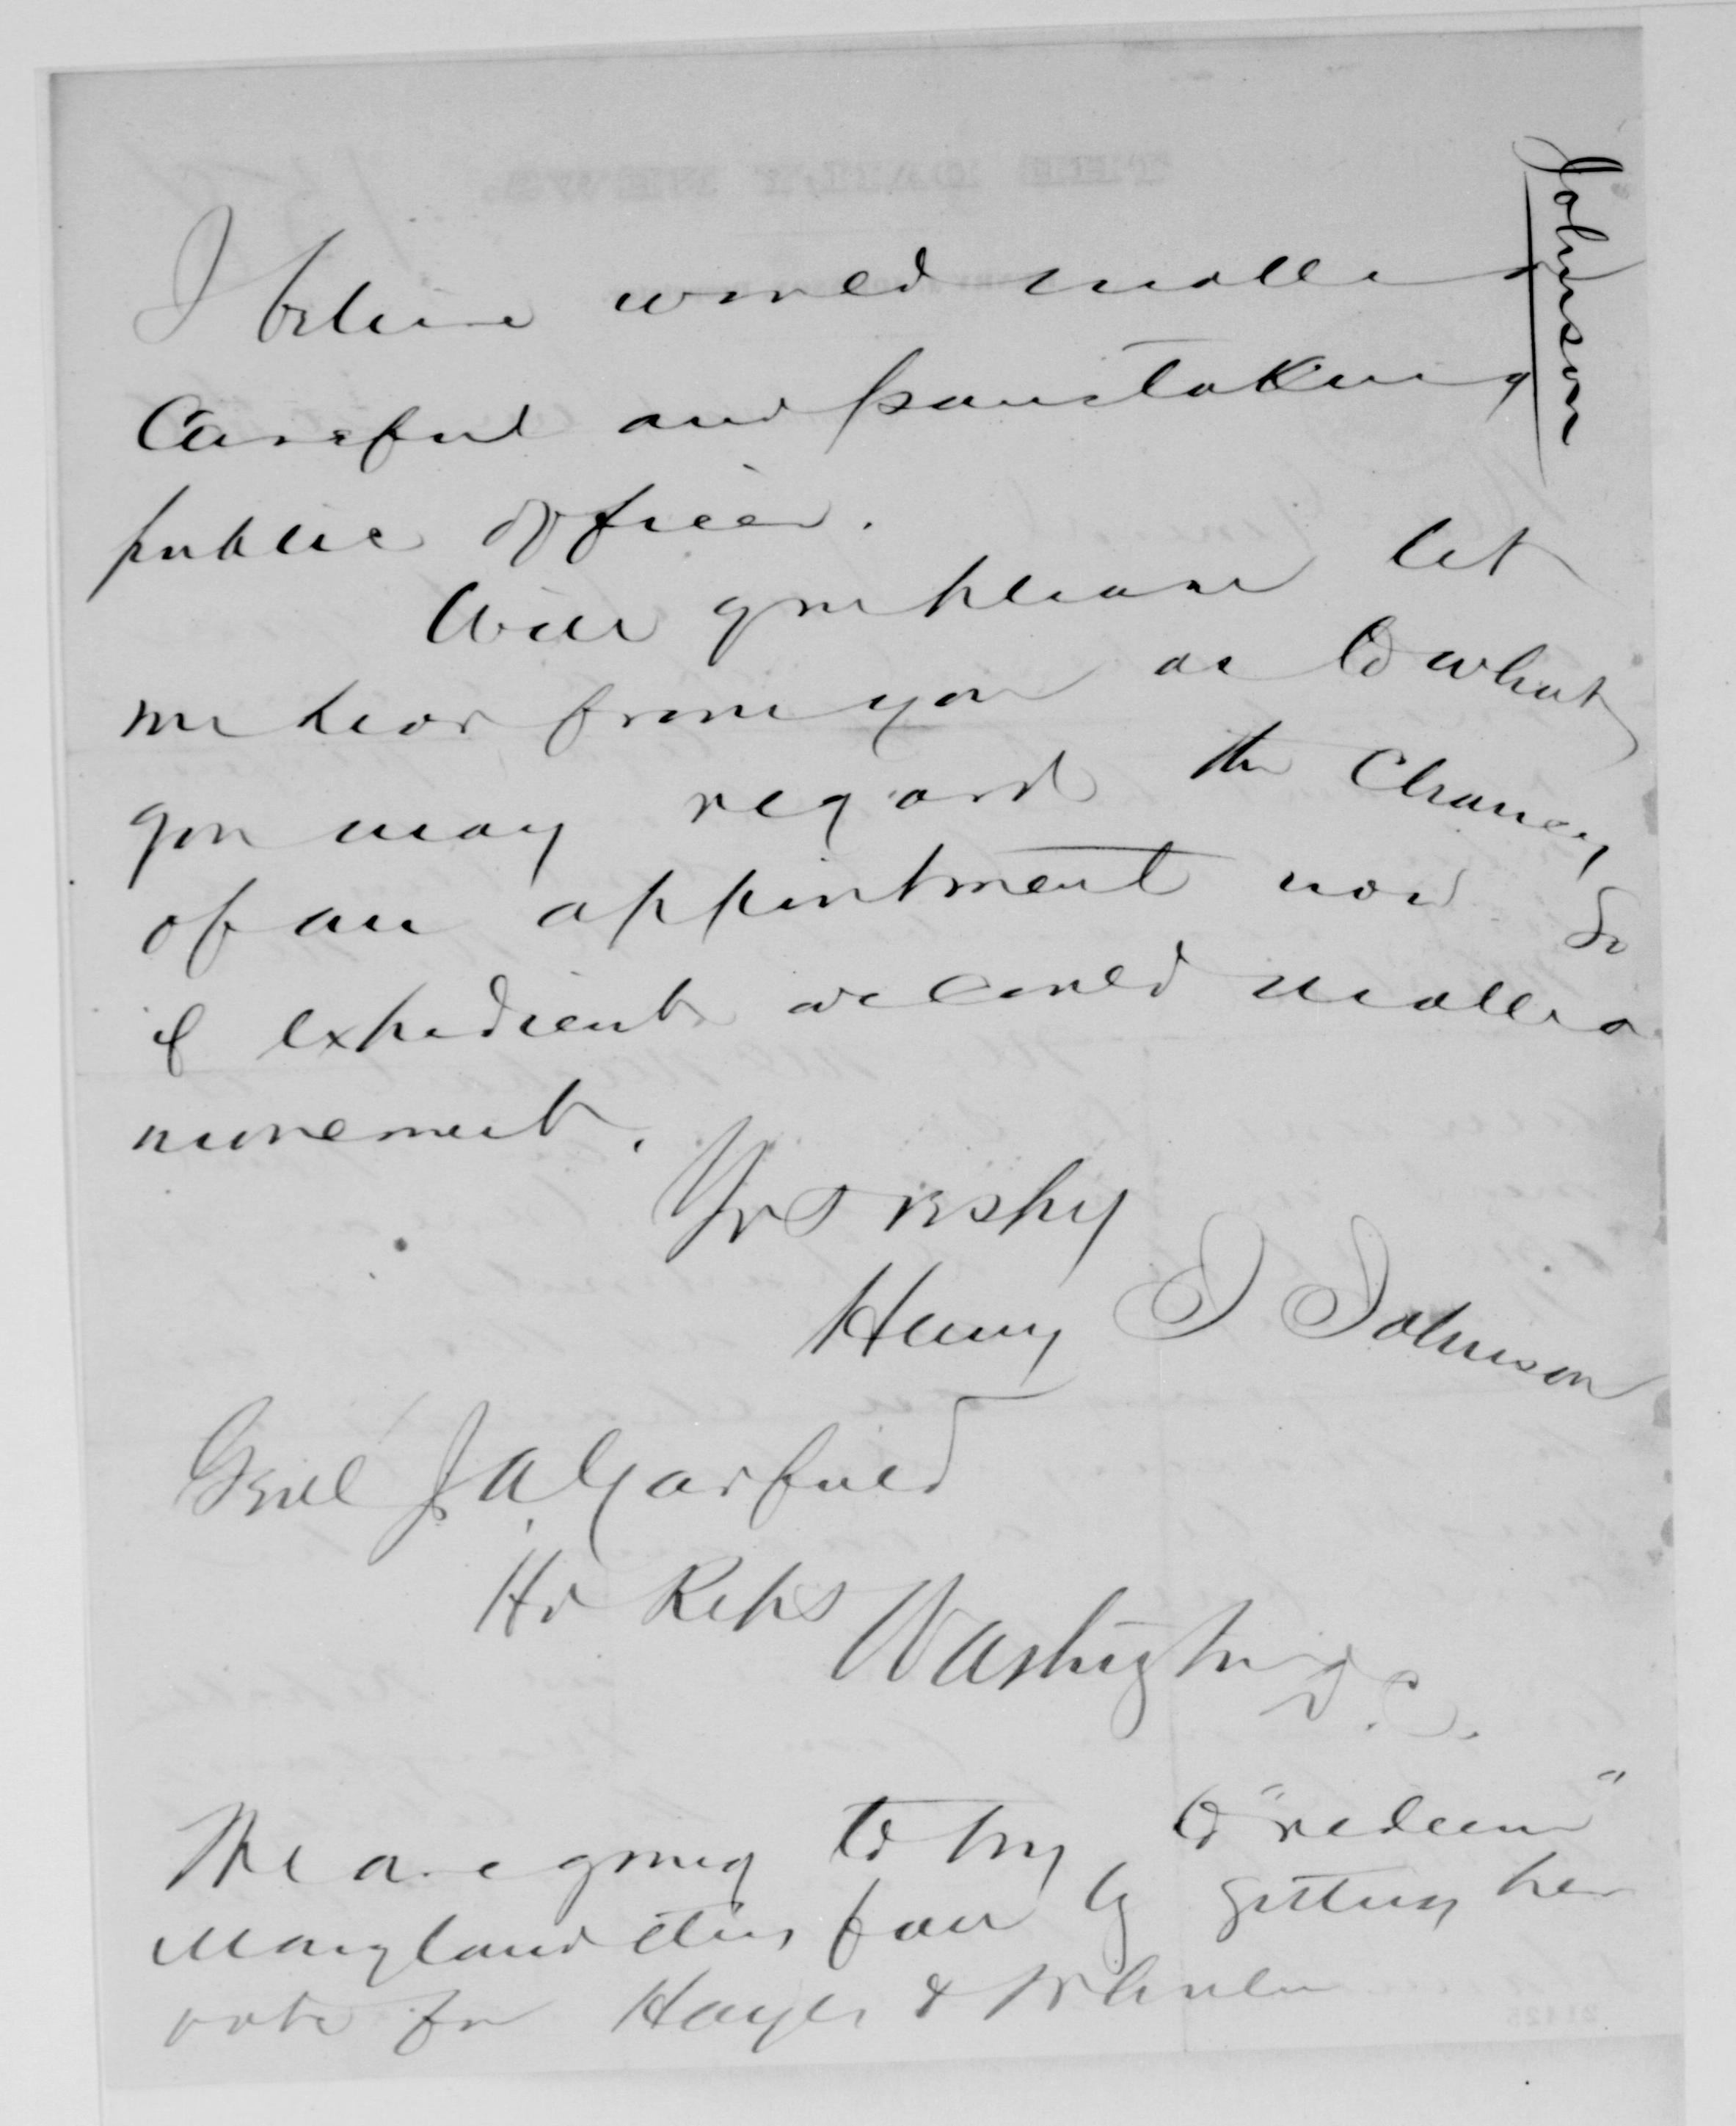 Johnson
I believe would make a
Careful and painstaking
public officer.
Will you please let
me hear from you as to what
you may regard the chances
of an appointment now So
if expedient we could make a
movement.
Yrs respy
Henry J Johnson
Genl J A Garfield
Ho Reps
Washington D.C.
We are going to try to "redeem"
Maryland this fall by getting her
vote for Hayes & Wheeler